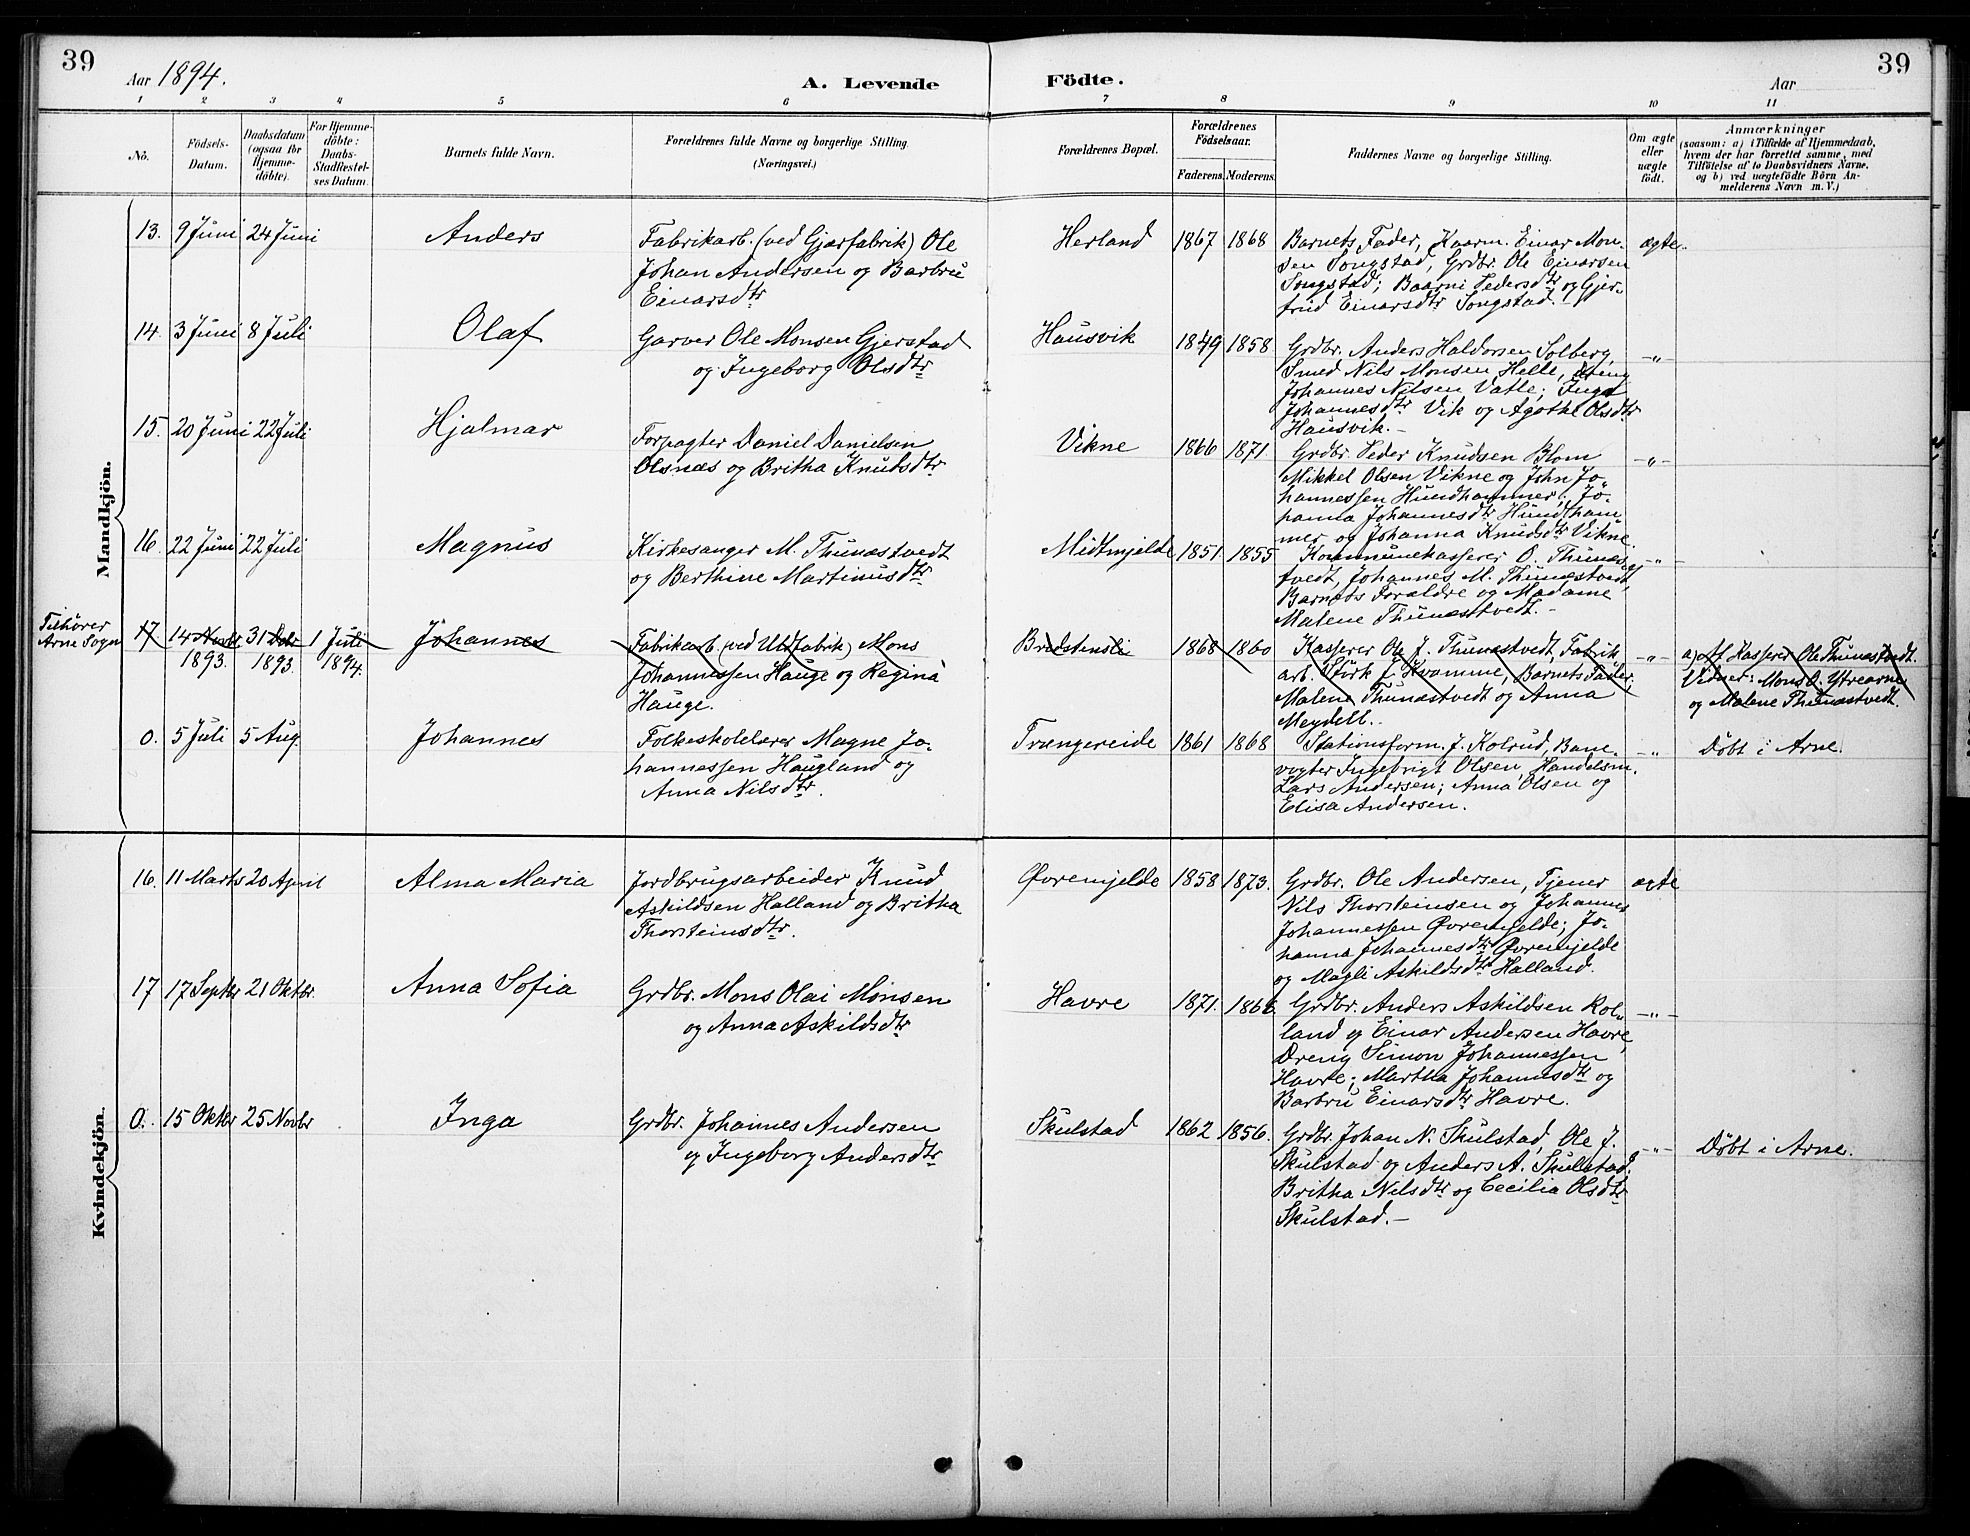 39
Aar 1894.
A. Levende
Födte.
Aar
39
1 2 3 4 5 6 7 8 9 10 11
No.
Födsels-
Datum.
Daabsdatum
(ogsaa for
Hjemme-
döbte).
For Hjemme-
döbte:
Daabs-
Stadfæstel-
ses Datum.
Barnets fulde Navn.
Forældrenes fulde Navne og borgerlige Stilling.
(Næringsvei.)
Forældrenes Bopæl.
Forældrenes
Födselsaar.
Faderens. Moderens.
Faddernes Navne og borgerlige Stilling.
Om ægte
eller
uægte
födt.
Anmærkninger
(saasom: a) i Tilfælde af Hjemmedaab,
hvem der har forrettet samme, med
Tilföielse af to Daabsvidners Navne.
og b) ved uægtefödte Börn An-
melderens Navn m. V.)
Mandkjön.
13. 9 Juni 24 Juni
Anders
Fabrikarb. (ved Gjærfabrik) Ole
Johan Andersen og Barbru
Einarsdtr
Herland
1867 1868
Barnets Fader, Kaarm. Einar Mon-
sen Songstad, Grdbr. Ole Einarsen
Songstad; Baarni Pedersdtr og Gjer-
trud Einarsdtr Songstad.
ægte.
14. 3 Juni 8 Juli
Olaf
Garver Ole Monsen Gjerstad
og Ingeborg Olsdtr
Hausvik
1849 1858
Grdbr. Anders Haldorsen Solberg,
Smed Nils Monsen Helle, Dreng
Johannes Nilsen Vatle; Inga
Johannesdtr Vik og Agathe Olsdtr
Hausvik.-
-"-
15. 20 Juni 22 Juli
Hjalmar
Forpagter Daniel Danielsen
Olsnæs og Britha Knutsdtr
Vikne
1866 1871
Grdbr. Peder Knudsen Blom
Mikkel Olsen Vikne og John Jo-
hannessen Hundhammer; Jo-
hanna Johannesdtr Hundham-
mer og Johanna Knudsdtr Vikne
-"-
16. 22 Juni 22 Juli
Magnus
Kirkesanger M. Thunæstvedt
og Berthine Martinusdtr
Midtmjelde
1851. 1855
Kommunekasserer O. Thunæs-
tvedt, Johannes M. Thunæstvedt,
Barnets Forældre og Madame
Malene Thunæstvedt.-
-"-
Tilhører
Arne Sogn
17. 14 Novbr 31 Debr 1 Juli
1893. 1893. 1894.
Johannes
Fabrikarb. (ved Uldfabrik) Mons
Johannessen Hauge og Regina
Hauge.
Bredstensli
1868 1860
Kasserer Ole J. Thunæstvedt, Fabrik
arb. Størk J. Kvamme, Barnets Fader;
Malene Thunæstvedt og Anna
Meydell.
-"-
a) Af Kasserer Ole Thunæstvedt.
Vidner: Mons O. Ytrearne
og Malene Thunæstvedt.
0. 5 Juli 5 Aug.
Johannes
Folkeskolelærer Magne Jo-
hannessen Haugland og
Anna Nilsdtr.
Trængereide
1861 1868
Stationsform. J. Kolrud, Bane-
vogter Ingebrigt Olsen, Handelsm.
Lars Andersen; Anna Olsen og
Elisa Andersen.
-"-
Döbt i Arne.
Kvindekjön.
16. 11 Marts 20 April
Alma Maria
Jordbrugsarbeider Knud
Askildsen Halland og Britha
Thorsteinsdtr.
Øvremjelde
1858 1873.
Grdbr. Ole Andersen, Tjener
Nils Thorsteinsen og Johannes
Johannessen Øvremjelde; Jo-
hanna Johannesdtr Øvremjelde
og Magli Askildsdtr Halland.
ægte
17 17 Septbr 21 Oktbr.
Anna Sofia
Grdbr. Mons Olai Monsen
og Anna Askildsdtr
Havre
1871.
Grdbr. Anders Askildsen Rol-
land og Einar Andersen Havre,
Dreng Simon Johannessen
Havre; Martha Johannesdtr og
Barbru Einarsdtr Havre.
-"-
0. 15 Oktbr 25 Novbr
Inga
Grdbr. Johannes Andersen
og Ingeborg Andersdtr
Skulstad
1862 1856.
Grdbr. Johan N. Skulstad, Ole J.
Skulstad og Anders A. Skulstad;
Britha Nilsdtr og Cecilia Olsdtr
Skulstad.-
-"-
Döbt i Arne.